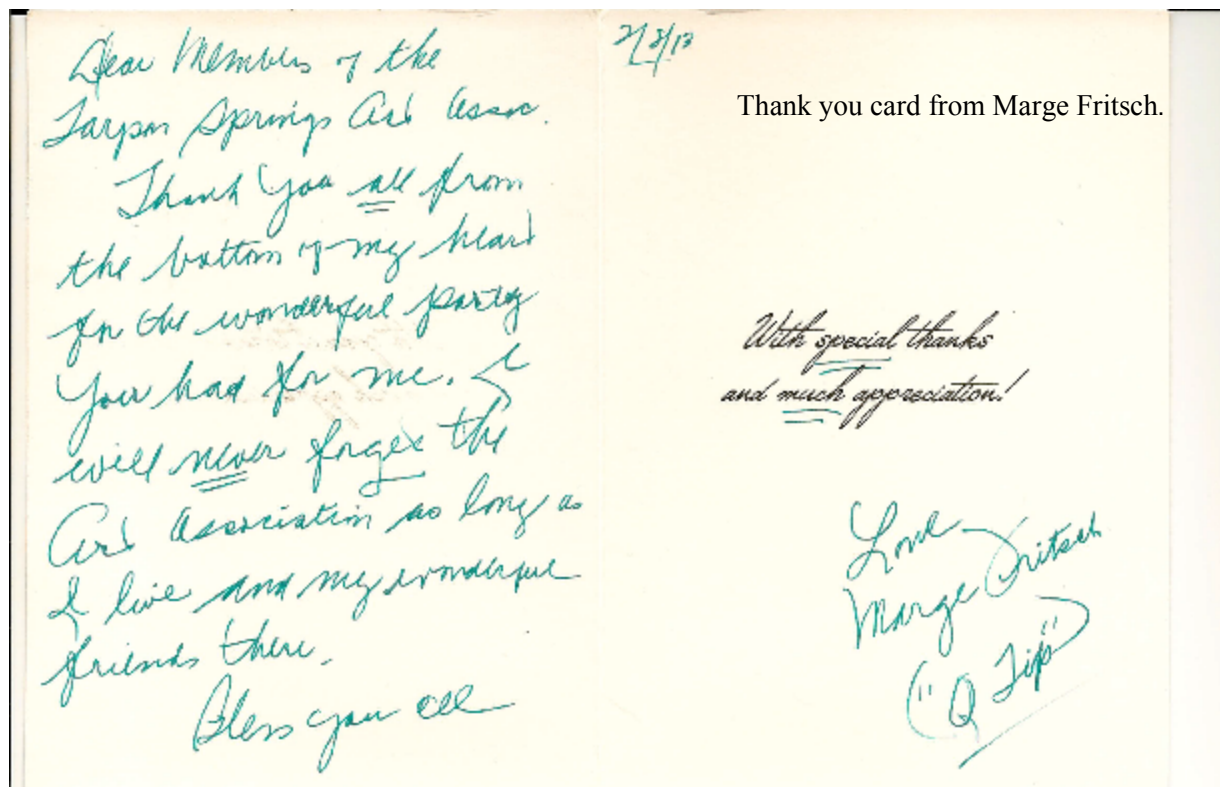 Dear Members of the
Tarpon Springs Art Assoc.
Thank You all from
the bottom of my heart
for the wonderful party
You had for me. I
will never forget the
Art Association as long as
I live and my wonderful
friends there.
Bless you all
2/8/13
Thank you card from Marge Fritsch.
With special thanks
and much appreciation!
Love
Marge Fritsch
("Q Tip")